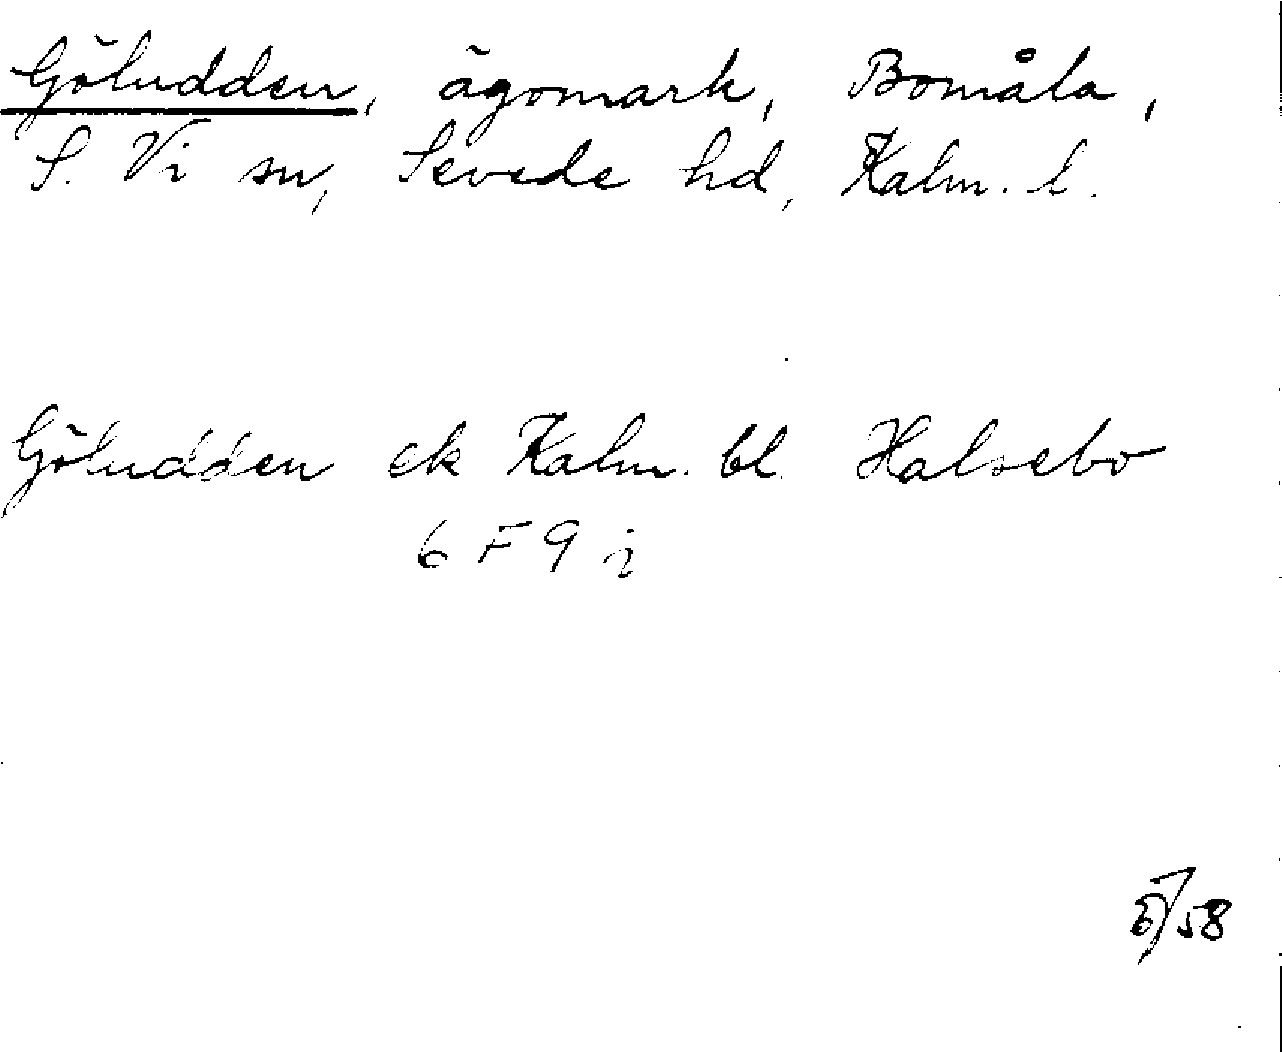 Göludden, ägomark, Bomåla,
S. Vi sn, Sevede hd, Kalm. l.
Göludden ek Kalm. bl. Halsebo
6 F 9 i